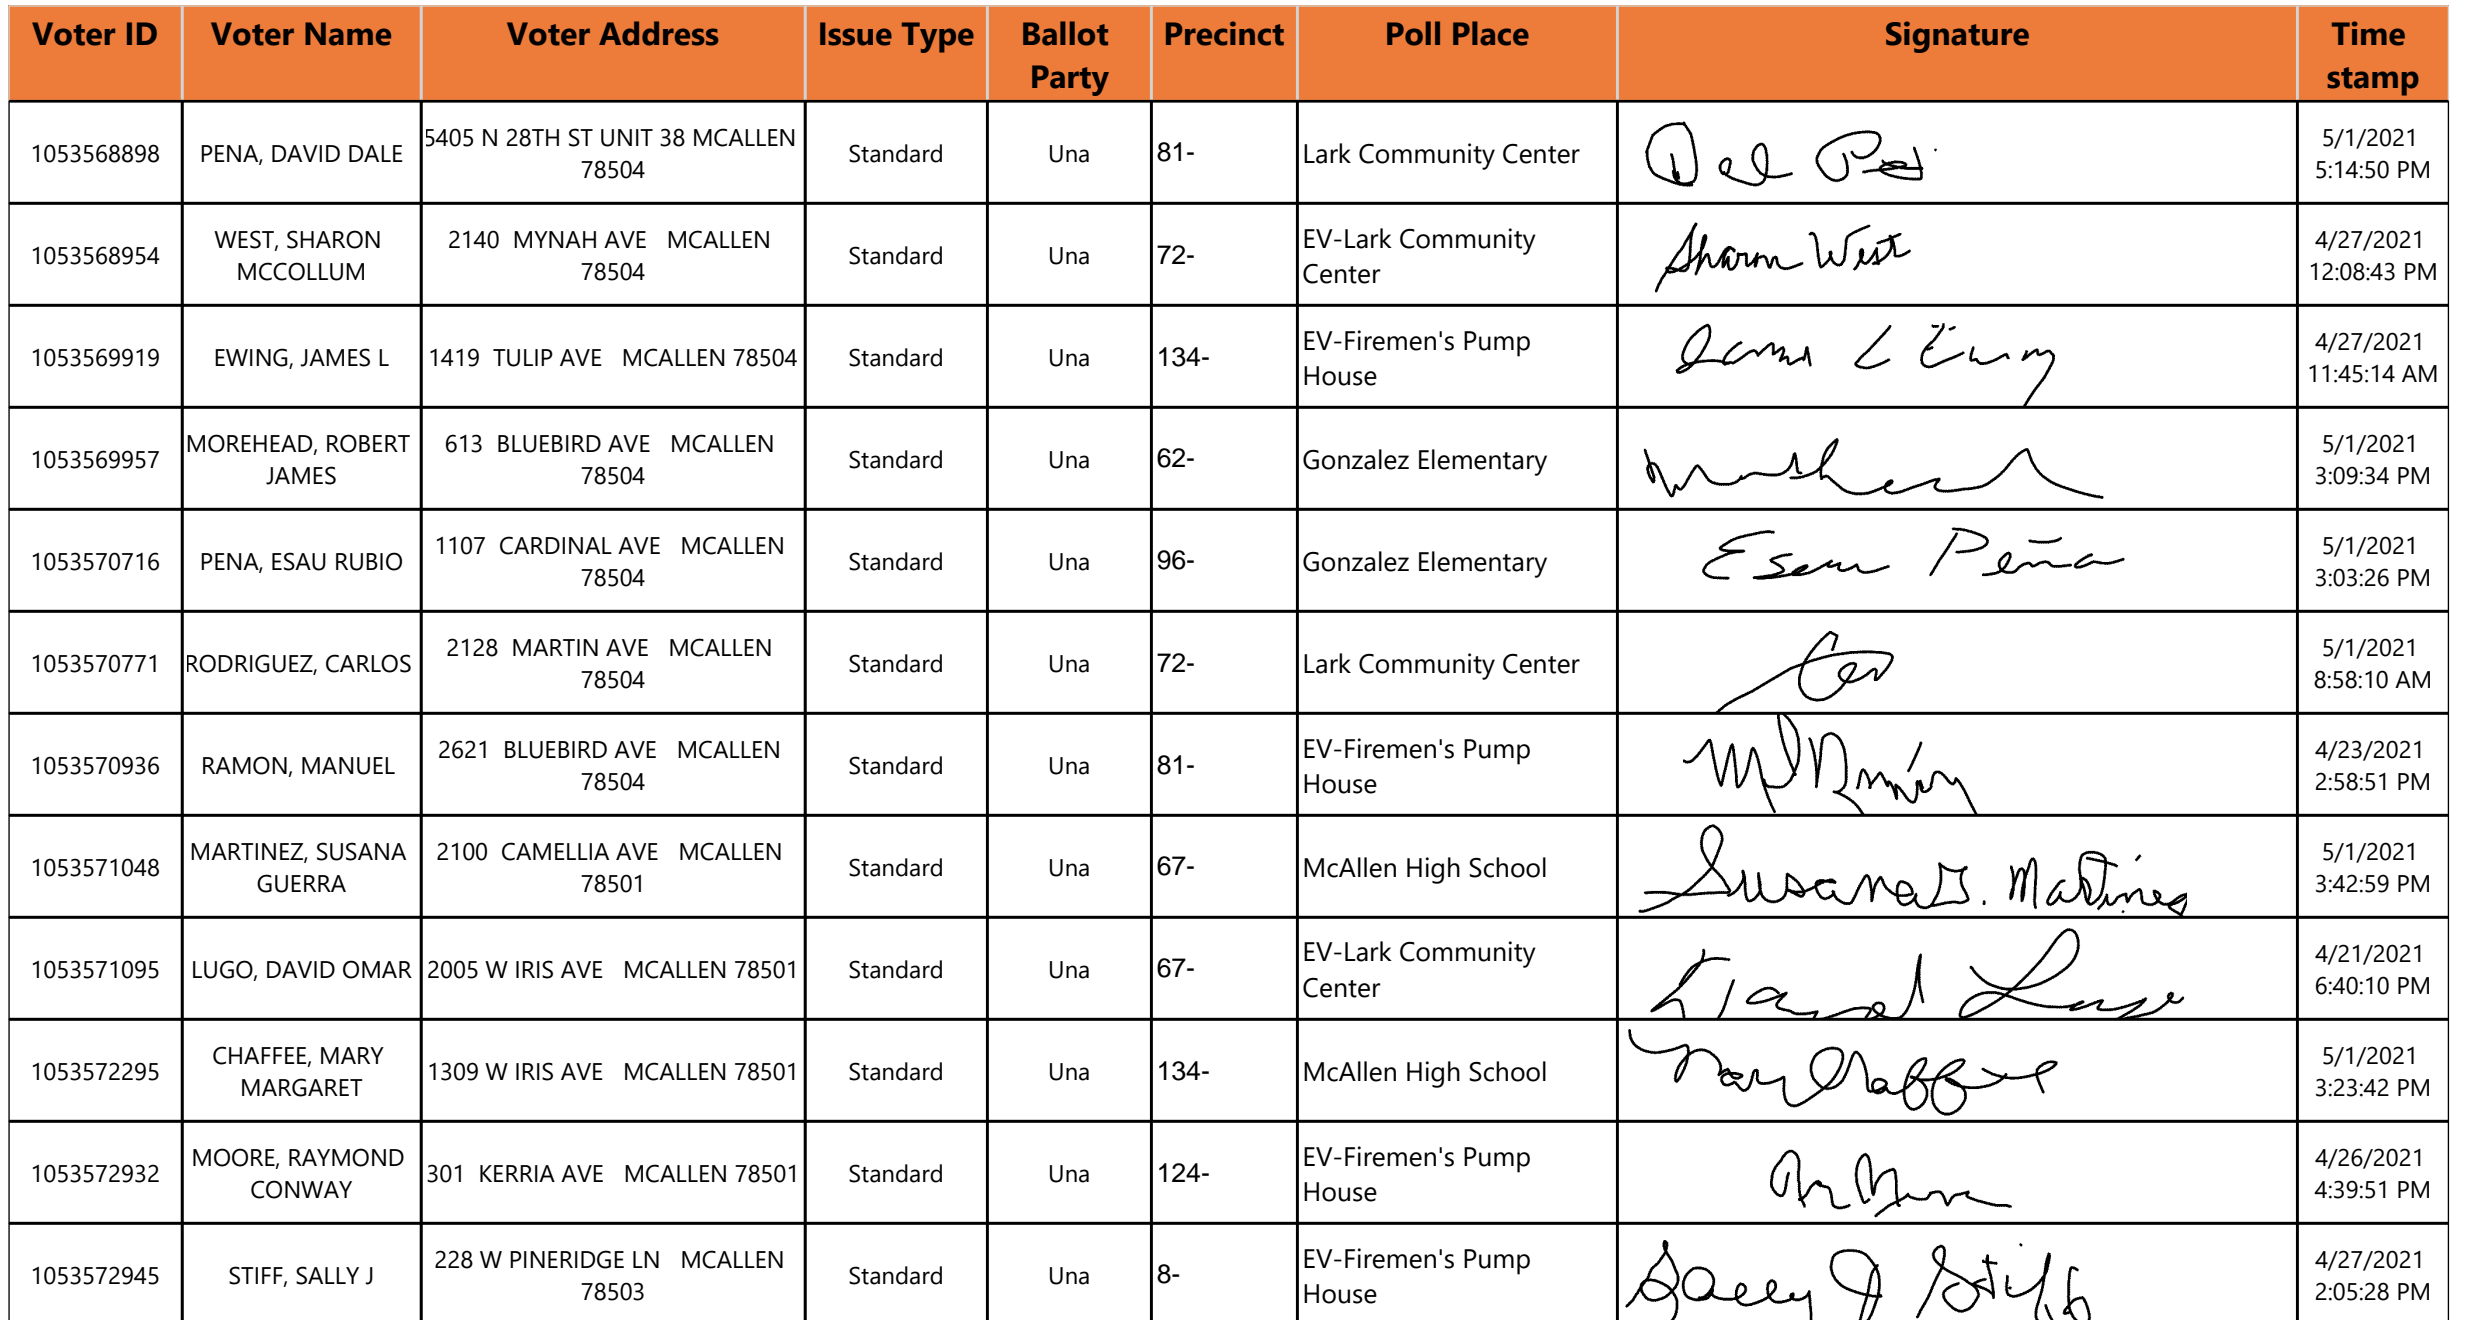 Voter ID Voter Name Voter Address Issue Type Ballot Party Precinct Poll Place Signature Time stamp
1053568898 PENA, DAVID DALE 5405 N 28TH ST UNIT 38 MCALLEN 78504 Standard Una 81- Lark Community Center 5/1/2021 5:14:50 PM
1053568954 WEST, SHARON MCCOLLUM 2140 MYNAH AVE MCALLEN 78504 Standard Una 72- EV-Lark Community Center Sharon West 4/27/2021 12:08:43 PM
1053569919 EWING, JAMES L 1419 TULIP AVE MCALLEN 78504 Standard Una 134- EV-Firemen's Pump House James L Ewing 4/27/2021 11:45:14 AM
1053569957 MOREHEAD, ROBERT JAMES 613 BLUEBIRD AVE MCALLEN 78504 Standard Una 62- Gonzalez Elementary 5/1/2021 3:09:34 PM
1053570716 PENA, ESAU RUBIO 1107 CARDINAL AVE MCALLEN 78504 Standard Una 96- Gonzalez Elementary Esau Peña 5/1/2021 3:03:26 PM
1053570771 RODRIGUEZ, CARLOS 2128 MARTIN AVE MCALLEN 78504 Standard Una 72- Lark Community Center 5/1/2021 8:58:10 AM
1053570936 RAMON, MANUEL 2621 BLUEBIRD AVE MCALLEN 78504 Standard Una 81- EV-Firemen's Pump House 4/23/2021 2:58:51 PM
1053571048 MARTINEZ, SUSANA GUERRA 2100 CAMELLIA AVE MCALLEN 78501 Standard Una 67- McAllen High School Susana G. Martinez 5/1/2021 3:42:59 PM
1053571095 LUGO, DAVID OMAR 2005 W IRIS AVE MCALLEN 78501 Standard Una 67- EV-Lark Community Center 4/21/2021 6:40:10 PM
1053572295 CHAFFEE, MARY MARGARET 1309 W IRIS AVE MCALLEN 78501 Standard Una 134- McAllen High School Mary Chaffee 5/1/2021 3:23:42 PM
1053572932 MOORE, RAYMOND CONWAY 301 KERRIA AVE MCALLEN 78501 Standard Una 124- EV-Firemen's Pump House 4/26/2021 4:39:51 PM
1053572945 STIFF, SALLY J 228 W PINERIDGE LN MCALLEN 78503 Standard Una 8- EV-Firemen's Pump House Sally J Stiff 4/27/2021 2:05:28 PM